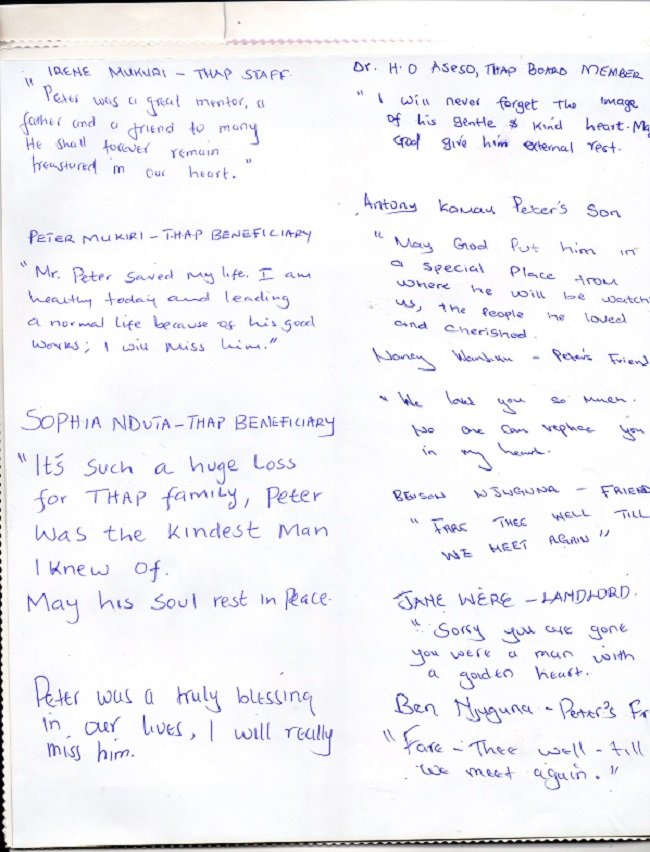 " IRENE MUKURI - THAP STAFF.
Peter was a great mentor, a
father and a friend to many
He shall forever remain
treastured in our heart."
PETER MUKIRI - THAP BENEFICIARY
"Mr. Peter saved my life. I am
healthy today and leading
a normal life because of his good
works; I will miss him."
SOPHIA NDUTA - THAP BENEFICIARY
"It's such a huge Loss
for THAP family, Peter
was the kindest Man
I knew of.
May his soul rest in Peace.
Peter was a truly blessing
in our lives, I will really
miss him.
Dr. H.O ASESO, THAP BOARD MEMBER
" I will never forget the image
of his gentle & kind heart. May
God give him external rest.
Antony Kamau Peter's Son
" May God Put him in
a special Place from
where he will be watch
us, the people he loved
and cherished.
Nancy - Peter's Friend
" We love you so much.
No one can replace you
in my heart.
BENSON NJUGUNA - FRIEND
" FARE THEE WELL TILL
WE MEET AGAIN "
JANE WERE - LANDLORD.
" Sorry you are gone
you were a man with
a golden heart.
Ben Njuguna - Peter's Fr
" Fare - Thee well - till
we meet again. "